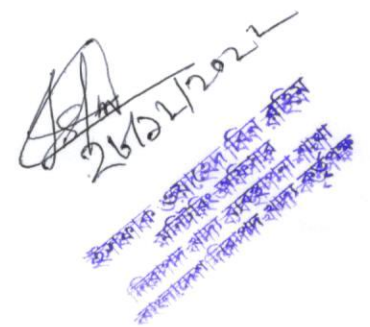 ২৮/১২/২০২২
ইশফাক ওয়াহেদ বিন রহিম
মনিটরিং অফিসার
নিরাপদ খাদ্য ব্যবস্থাপনা শাখা
বাংলাদেশ নিরাপদ খাদ্য কর্তৃপক্ষ